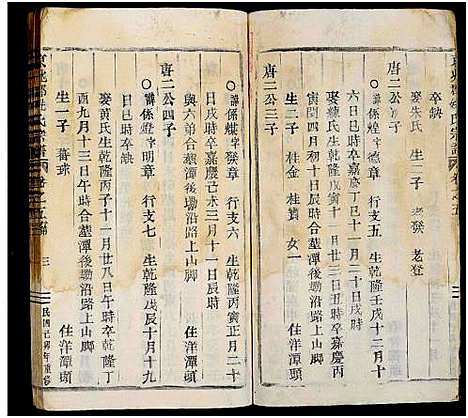 卒缺
娶朱氏 生二子 老發 老登
唐二公三子
諱係燈字章 行支五 生乾隆壬戌十二月十
六日巳時卒嘉慶丁巳十一月二十日戌時
娶練氏生乾隆戊寅十一月廿三日丑時卒嘉慶丙
寅閏四月初十日辰時合墓潭後塝沿路上山脚
生二子 桂金 桂寶 女一 住洋潭頭
唐二公四子
諱係燦字發章 行支六 生乾隆丙寅正月二十
日戌時卒嘉慶己未三月十一日辰時
與六弟合墓潭後塝沿路上山脚
諱係字明章 行支七 生乾隆戊辰十月十九
日巳時卒缺
娶黃氏生乾隆丙子十一月廿八日午時卒乾隆丁
酉九月十三日午時合墓潭後塝沿路上山脚
生一子 蕃球 住洋潭頭
三
民國己卯年重修